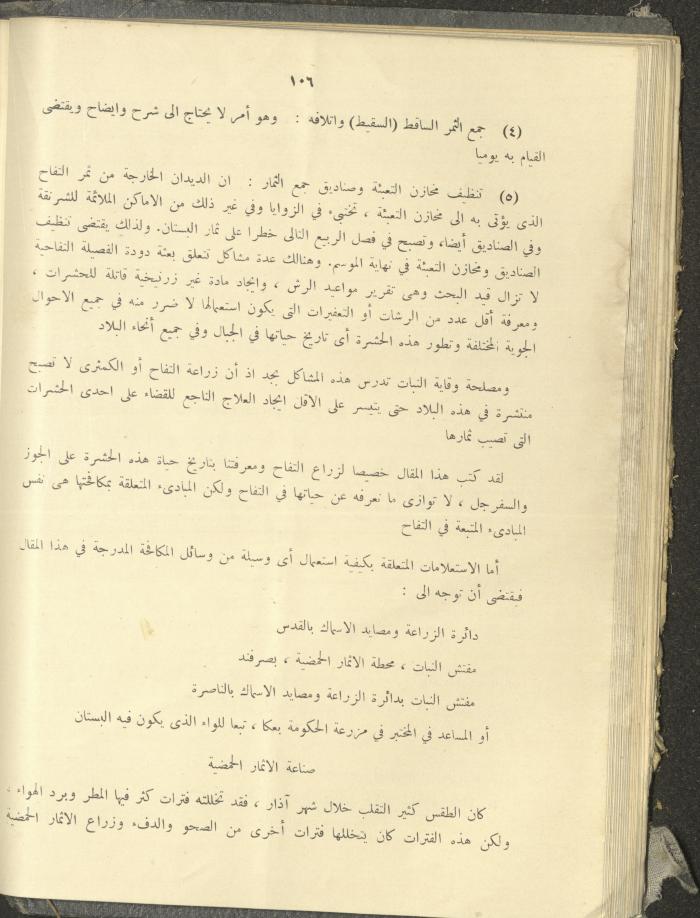 ١٠٦
(٤) جمع الثمر الساقط (السقيط) واتلافه : وهو أمر لا يحتاج الى شرح وايضاح ويقتضى
القيام به يوميا
(٥) تنظيف مخازن التعبئة وصناديق جمع الثمار : ان الديدان الخارجة من ثمر التفاح
الذى يؤتى به الى مخازن التعبئة ، تختبىء في الزوايا وفي غير ذلك من الاماكن الملائمة للشرنقة
وفي الصناديق أيضا، وتصبح في فصل الربيع التالى خطرا على ثمار البستان. ولذلك يقتضى تنظيف
الصناديق ومخازن التعبئة في نهاية الموسم. وهنالك عدة مشاكل تتعلق بعثة دودة الفصيلة التفاحية
لا تزال قيد البحث وهى تقرير مواعيد الرش ، وايجاد مادة غير زرنيخية قاتلة للحشرات ،
ومعرفة أقل عدد من الرشات أو التعفيرات التى يكون استعمالها لا ضرر منه في جميع الاحوال
الجوية المختلفة وتطور هذه الحشرة أى تاريخ حياتها في الجبال وفي جميع أنحاء البلاد
ومصلحة وقاية النبات تدرس هذه المشاكل بجد اذ أن زراعة التفاح أو الكمثرى لا تصبح
منتشرة في هذه البلاد حتى يتيسر على الاقل ايجاد العلاج الناجع للقضاء على احدى الحشرات
التى تصيب ثمارها
لقد كتب هذا المقال خصيصا لزراع التفاح ومعرفتنا بتاريخ حياة هذه الحشرة على الجوز
والسفرجل ، لا توازى ما نعرفه عن حياتها في التفاح ولكن المبادىء المتعلقة بمكافحتها هى نفس
المبادىء المتبعة في التفاح
أما الاستعلامات المتعلقة بكيفية استعمال أى وسيلة من وسائل المكافحة المدرجة في هذا المقال
فيقتضى أن توجه الى :
دائرة الزراعة ومصايد الاسماك بالقدس
مفتش النبات ، محطة الاثمار الحمضية ، بصرفند
مفتش النبات بدائرة الزراعة ومصايد الاسماك بالناصرة
أو المساعد في المختبر في مزرعة الحكومة بعكا ، تبعا للواء الذى يكون فيه البستان
صناعة الاثمار الحمضية
كان الطقس كثير التقلب خلال شهر آذار ، فقد تخللته فترات كثر فيها المطر وبرد الهواء ،
ولكن هذه الفترات كان يتخللها فترات أخرى من الصحو والدفء وزراع الاثمار الحمضية